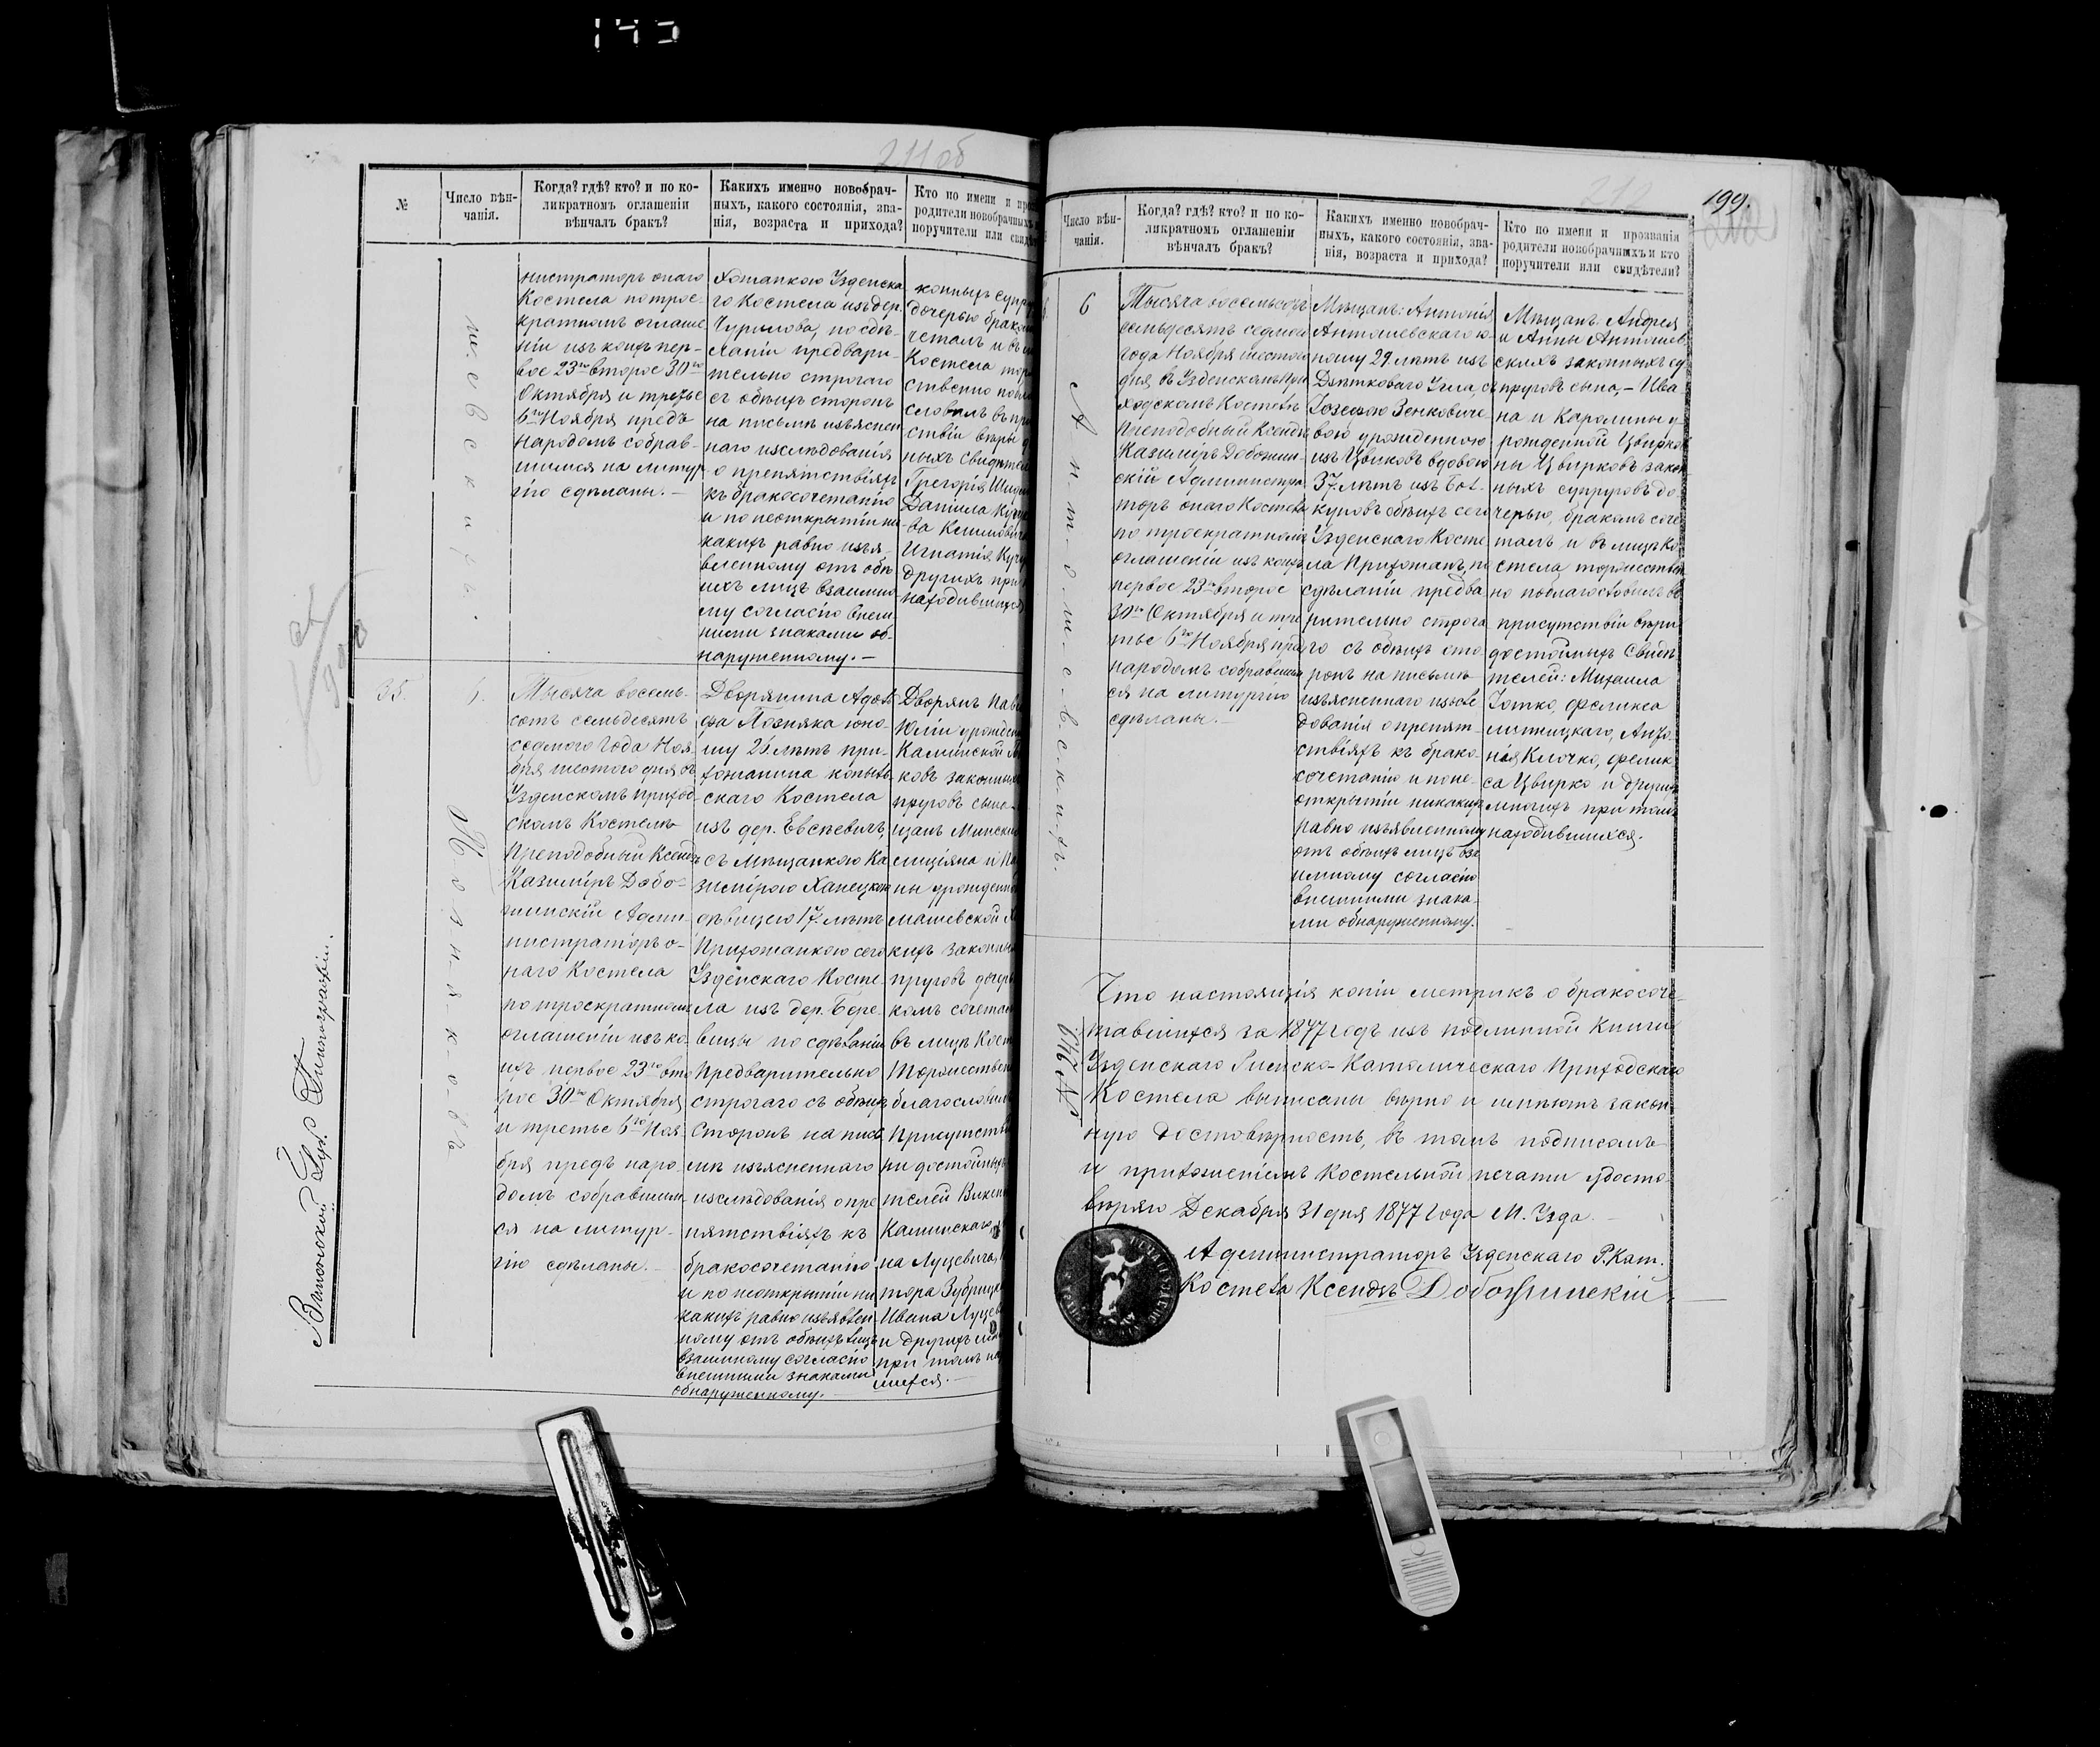 211 об
№
Число вѣн-
чанія.
Когда? гдѣ? кто? и по ко-
ликратномъ оглашеніи
вѣнчалъ бракъ?
Какихъ именно новобрач-
ныхъ, какого состоянія, зва-
нія, возраста и прихода?
Кто по имени и
родители новобрачныхъ
поручители или
нистраторъ онаго
Костела по трое-
кратномъ оглаше-
ніи изъ коихъ пер-
вое 23го второе 30го
Октября и третье
6го Ноября предъ
народомъ собрав-
шимся на литур-
гію сдѣланы. —
хожанкою Узденска
го Костела изъ дер.
Чурилова, по сдѣ-
ланіи предвари-
тельно строгаго
съ обѣихъ сторонъ
на письмѣ изъяснен
наго изслѣдованія
о препятствіяхъ
къ бракосочетанію
и по неоткрытіи ни
какихъ равно изъя-
вленному отъ обѣ
ихъ лицъ взаимно
му согласію внѣш
ними знаками об-
наруженному. —
конныхъ супр
дочерью брако
четалъ и въ
Костела тор
ственно
словилъ въ при
ствіи вѣры д
ныхъ свидѣтел
Грегорія
Даніила
Игнатія
другихъ при
находившихся
35.
6.
Позняковъ
Тысяча восемь-
сотъ семьдесятъ
седмого года Ноя-
бря шестого дня въ
Узденскомъ приход-
скомъ Костелѣ
Преподобный Ксендзъ
Казиміръ Добо-
шинскій Адми-
нистраторъ о-
наго Костела
по троекратномъ
оглашеніи изъ ко-
ихъ первое 23го вто
рое 30го Октября
и третье 6го Ноя-
бря предъ наро-
домъ собравшим-
ся на литур-
гію сдѣланы. —
Дворянина Адоль
фа Позняка юно-
шу 25 лѣтъ при-
хожанина копыль
скаго Костела
изъ дер. Евсѣевичъ
съ Мѣщанкою Ка
зимірою Ханецкою
дѣвицею 17 лѣтъ
Прихожанкою сего
Узденскаго Косте-
ла изъ дер. Бере-
вицы по сдѣланіи
Предварительно
строгаго съ обѣихъ
Сторонъ на пись
мѣ изъясненнаго
изслѣдованія о пре
пятствіяхъ къ
бракосочетанію
и по неоткрытіи ни
какихъ равно изъявлен
ному отъ обѣихъ лицъ
взаимному согласію
внѣшними знаками
обнаруженному. —
Дворянъ
Юліи урожден
Калинской
ковъ законны
пруговъ сына
щанъ Мински
лиціяна и
ны урожденно
машевской
кихъ законны
пруговъ дочер
комъ сочетал
въ лицѣ Кост
Торжествен
благослови
Присутств
ни достойныхъ
телей
Калинскаго
на Луцевича,
тора
Ивана Луцев
и другихъ мн
при томъ на
шихся. —
Виленской Губ. Типографіи.
212
199.
Число вѣн-
чанія.
Когда? гдѣ? кто? и по ко-
ликратномъ оглашеніи
вѣнчалъ бракъ?
Какихъ именно новобрач-
ныхъ, какого состоянія, зва-
нія, возраста и прихода?
Кто по имени и прозванія
родители новобрачныхъ и кто
поручители или свидѣтели?
6
Антошевскихъ.
Тысяча восемьсотъ
семьдесятъ седмого
года Ноября шестого
дня въ Узденскомъ При
ходскомъ Костелѣ
Преподобный Ксендзъ
Казиміръ Добошин-
скій Администра
торъ онаго Костела
по троекратномъ
оглашеніи изъ коихъ
первое 23го второе
30го Октября и тре
тье 6го Ноября предъ
народомъ собравшим
ся на литургію
сдѣланы. —
Мѣщан: Антонія
Антошевскаго ю-
ношу 29 лѣтъ изъ
Дзятковаго Угла, съ
Іозефою Зенковиче-
вою урожденною
изъ Цвирковъ вдовою
37 лѣтъ изъ
обѣихъ сего
Узденскаго Косте
ла Прихожанъ, по
сдѣланіи предва
рительно строга
го съ обѣихъ сто
ронъ на письмѣ
изъясненнаго изслѣ
дованія о препят-
ствіяхъ къ брако-
сочетанію и по не-
открытіи никакихъ
равно изъявленному
отъ обѣихъ лицъ вза
имному согласію
внѣшними знака-
ми обнаруженному.
Мѣщанъ Андрея
и Анны Антошев
скихъ законныхъ су
пруговъ сына, — Ива
на и Каролины у-
рожденной Цвирко
ны Цвирковъ закон
ныхъ супруговъ до-
черью, бракомъ соче
талъ и въ лицѣ Ко
стела торжествен
но поблагословилъ въ
присутствіи вѣры
достойныхъ Свидѣ
телей: Михаила
Зотко, Феликса
Анто
нія Клочко, Фелик
са Цвирко и другихъ
многихъ при томъ
находившихся.
Что настоящія копіи метрикъ о бракосоче-
тавшихся за 1877 годъ изъ подлинной Книги
Узденскаго Римско-Католическаго Приходскаго
Костела выписаны вѣрно и имѣютъ закон
ную достовѣрность, въ томъ подписомъ
и приложеніемъ Костельной печати удосто
вѣряю Декабря 31 дня 1877 года М. Узда. —
Администраторъ Узденскаго Р. Кат.
Костела Ксендзъ Добошинскій